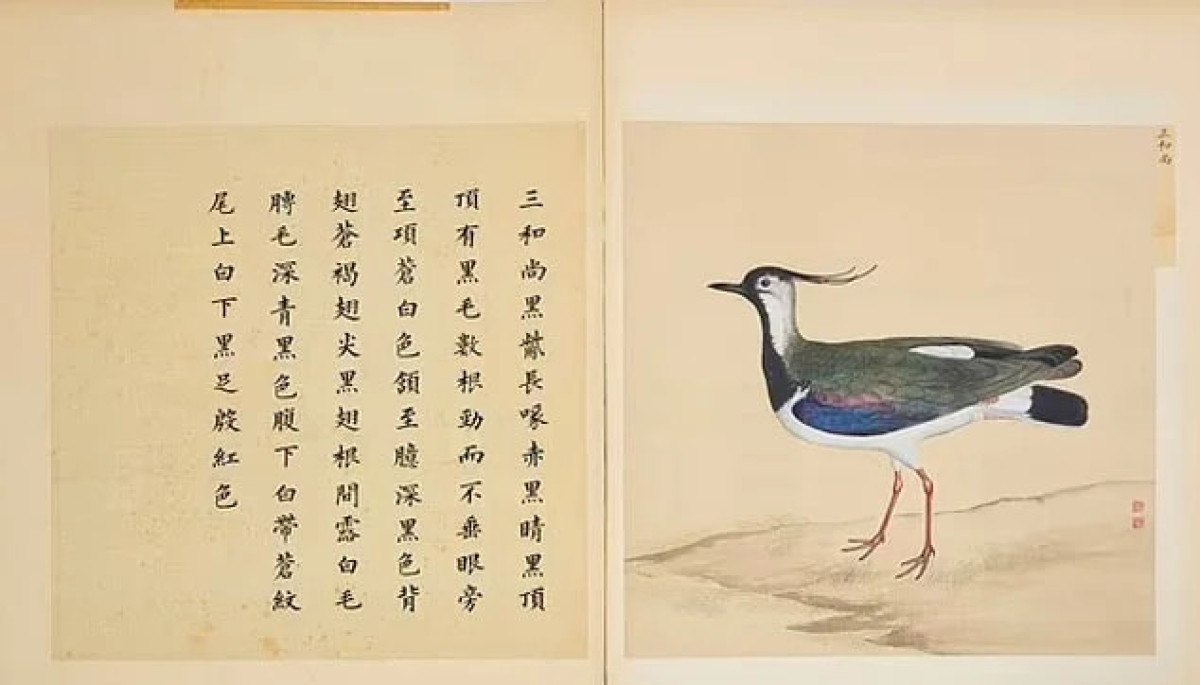 三和尚
三和尚黑長喙赤黑睛黑頂
頂有黑毛數根勁而不垂眼旁
至項蒼白色頷至臆深黑色背
翅蒼褐翅尖黑翅根間露白毛
膊毛深青黑色腹下白帶蒼紋
尾上白下黑足殷紅色